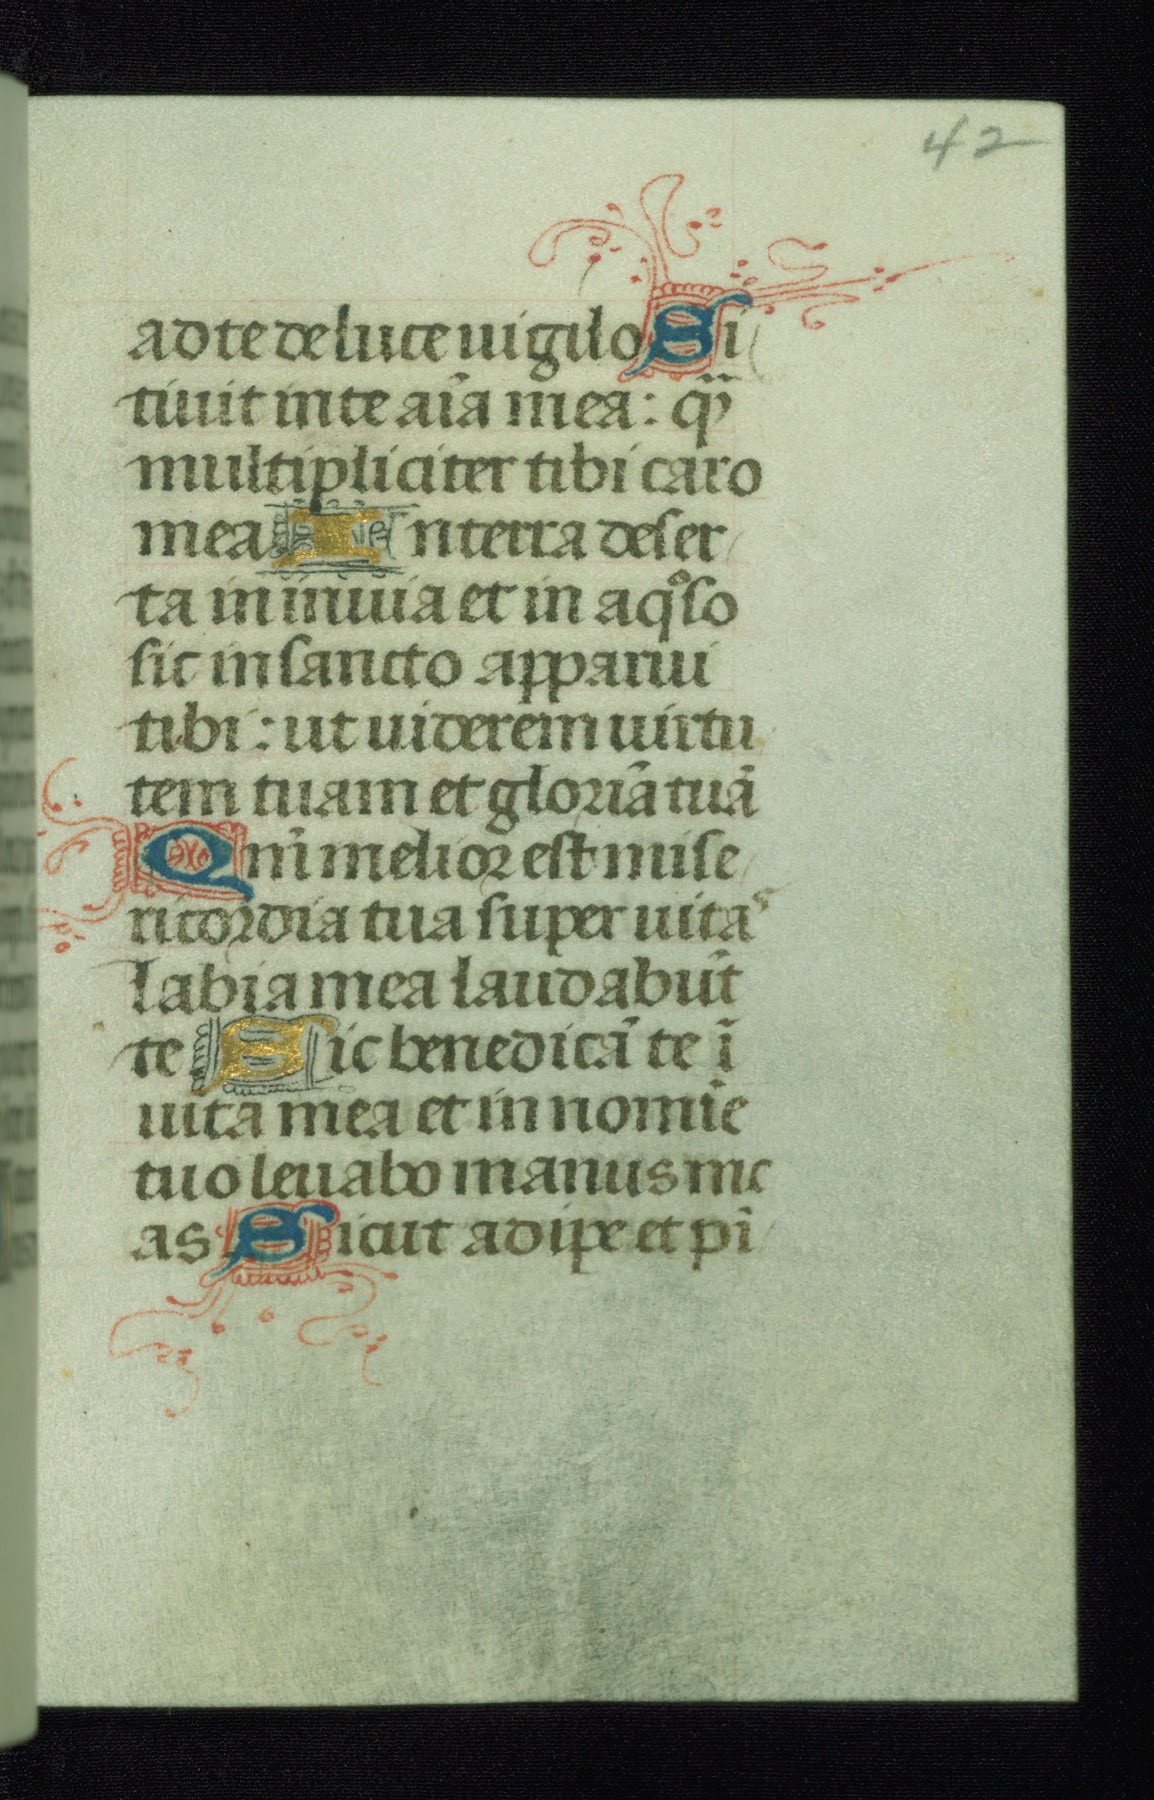 42
ad te de luce uigilo Si
tiuit in te aīa mea : qm̄
multipliciter tibi caro
mea In terra deser
ta in inuia et in aqͦso
sic in sancto apparui
tibi : ut uiderem uirtu
tem tuam et gloriā tuā
Qm̄ melior est mise
ricordia tua super uitas
labia mea laudabūt
te Sic benedicā te ī
uita mea et in nomīe
tuo leuabo manus me
as Sicut adipe et pī